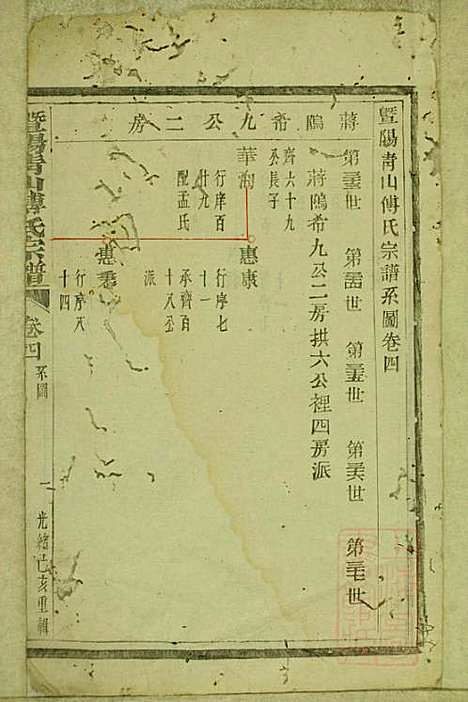 暨陽青山傅氏宗譜系圖卷四
第三世 第三世 第三世 第三世 第三世
蔣隖希九公二房拱六公裡四房派
蔣隖希九公二房
齊六十九
公長子
華潤
行序百
廿九
配孟氏
惠康
行序七
十一
承齊百
十八公
派
惠
行序八
十四
暨陽青山傅氏宗譜
卷四
系圖
一
光緒己亥重輯